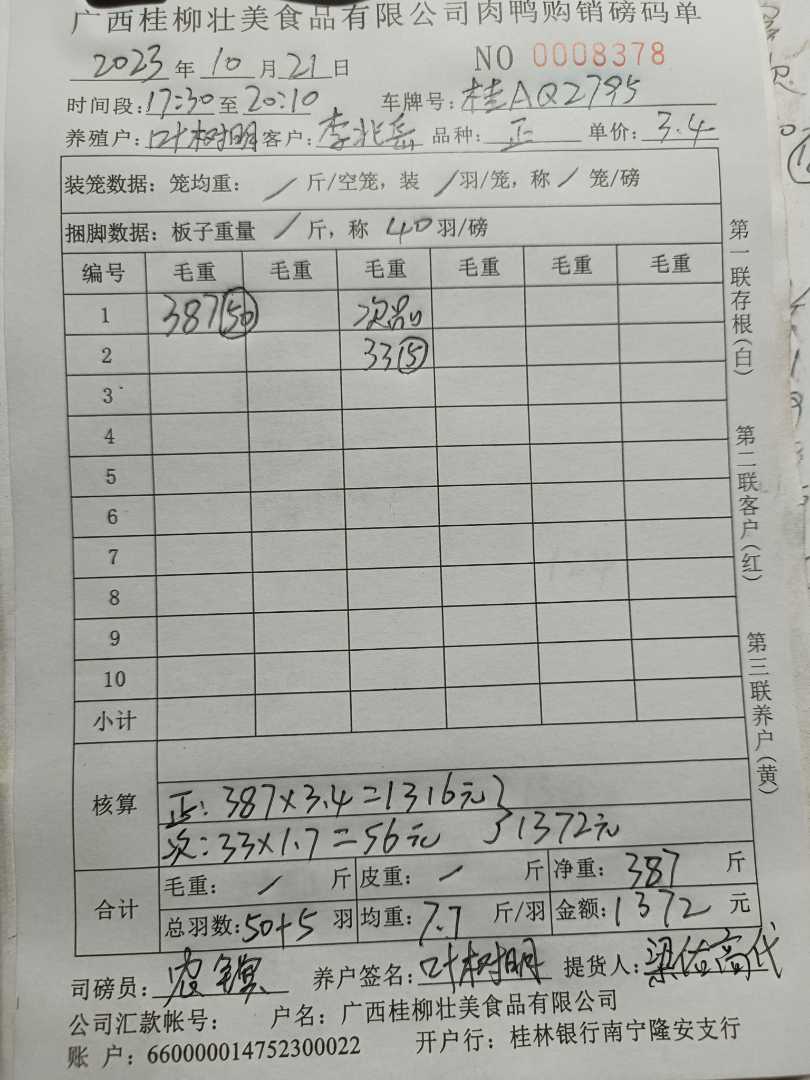 广西桂柳壮美食品有限公司肉鸭购销磅码单
2023年10月21日 NO 0008378
时间段:17:30至20:10 车牌号:桂AQ2795
养殖户:叶树明客户:李兆岳 品种:正 单价:3.4
装笼数据:笼均重: / 斤/空笼,装 /羽/笼,称/ 笼/磅
捆脚数据:板子重量 / 斤,称 40羽/磅
编号 毛重 毛重 毛重 毛重 毛重 毛重
1 387(50) 次品
2 33(5)
3
4
5
6
7
8
9
10
小计
核算
正:387×3.4=1316元}
次:33×1.7=56元 }1372元
合计
毛重: / 斤 皮重: / 斤 净重:387 斤
总羽数:50+5 羽 均重:7.7 斤/羽 金额:1372 元
司磅员: 养户签名:叶树明 提货人:
公司汇款帐号: 户名:广西桂柳壮美食品有限公司
账 户:660000014752300022 开户行:桂林银行南宁隆安支行
第一联存根(白)
第二联客户(红)
第三联养户(黄)